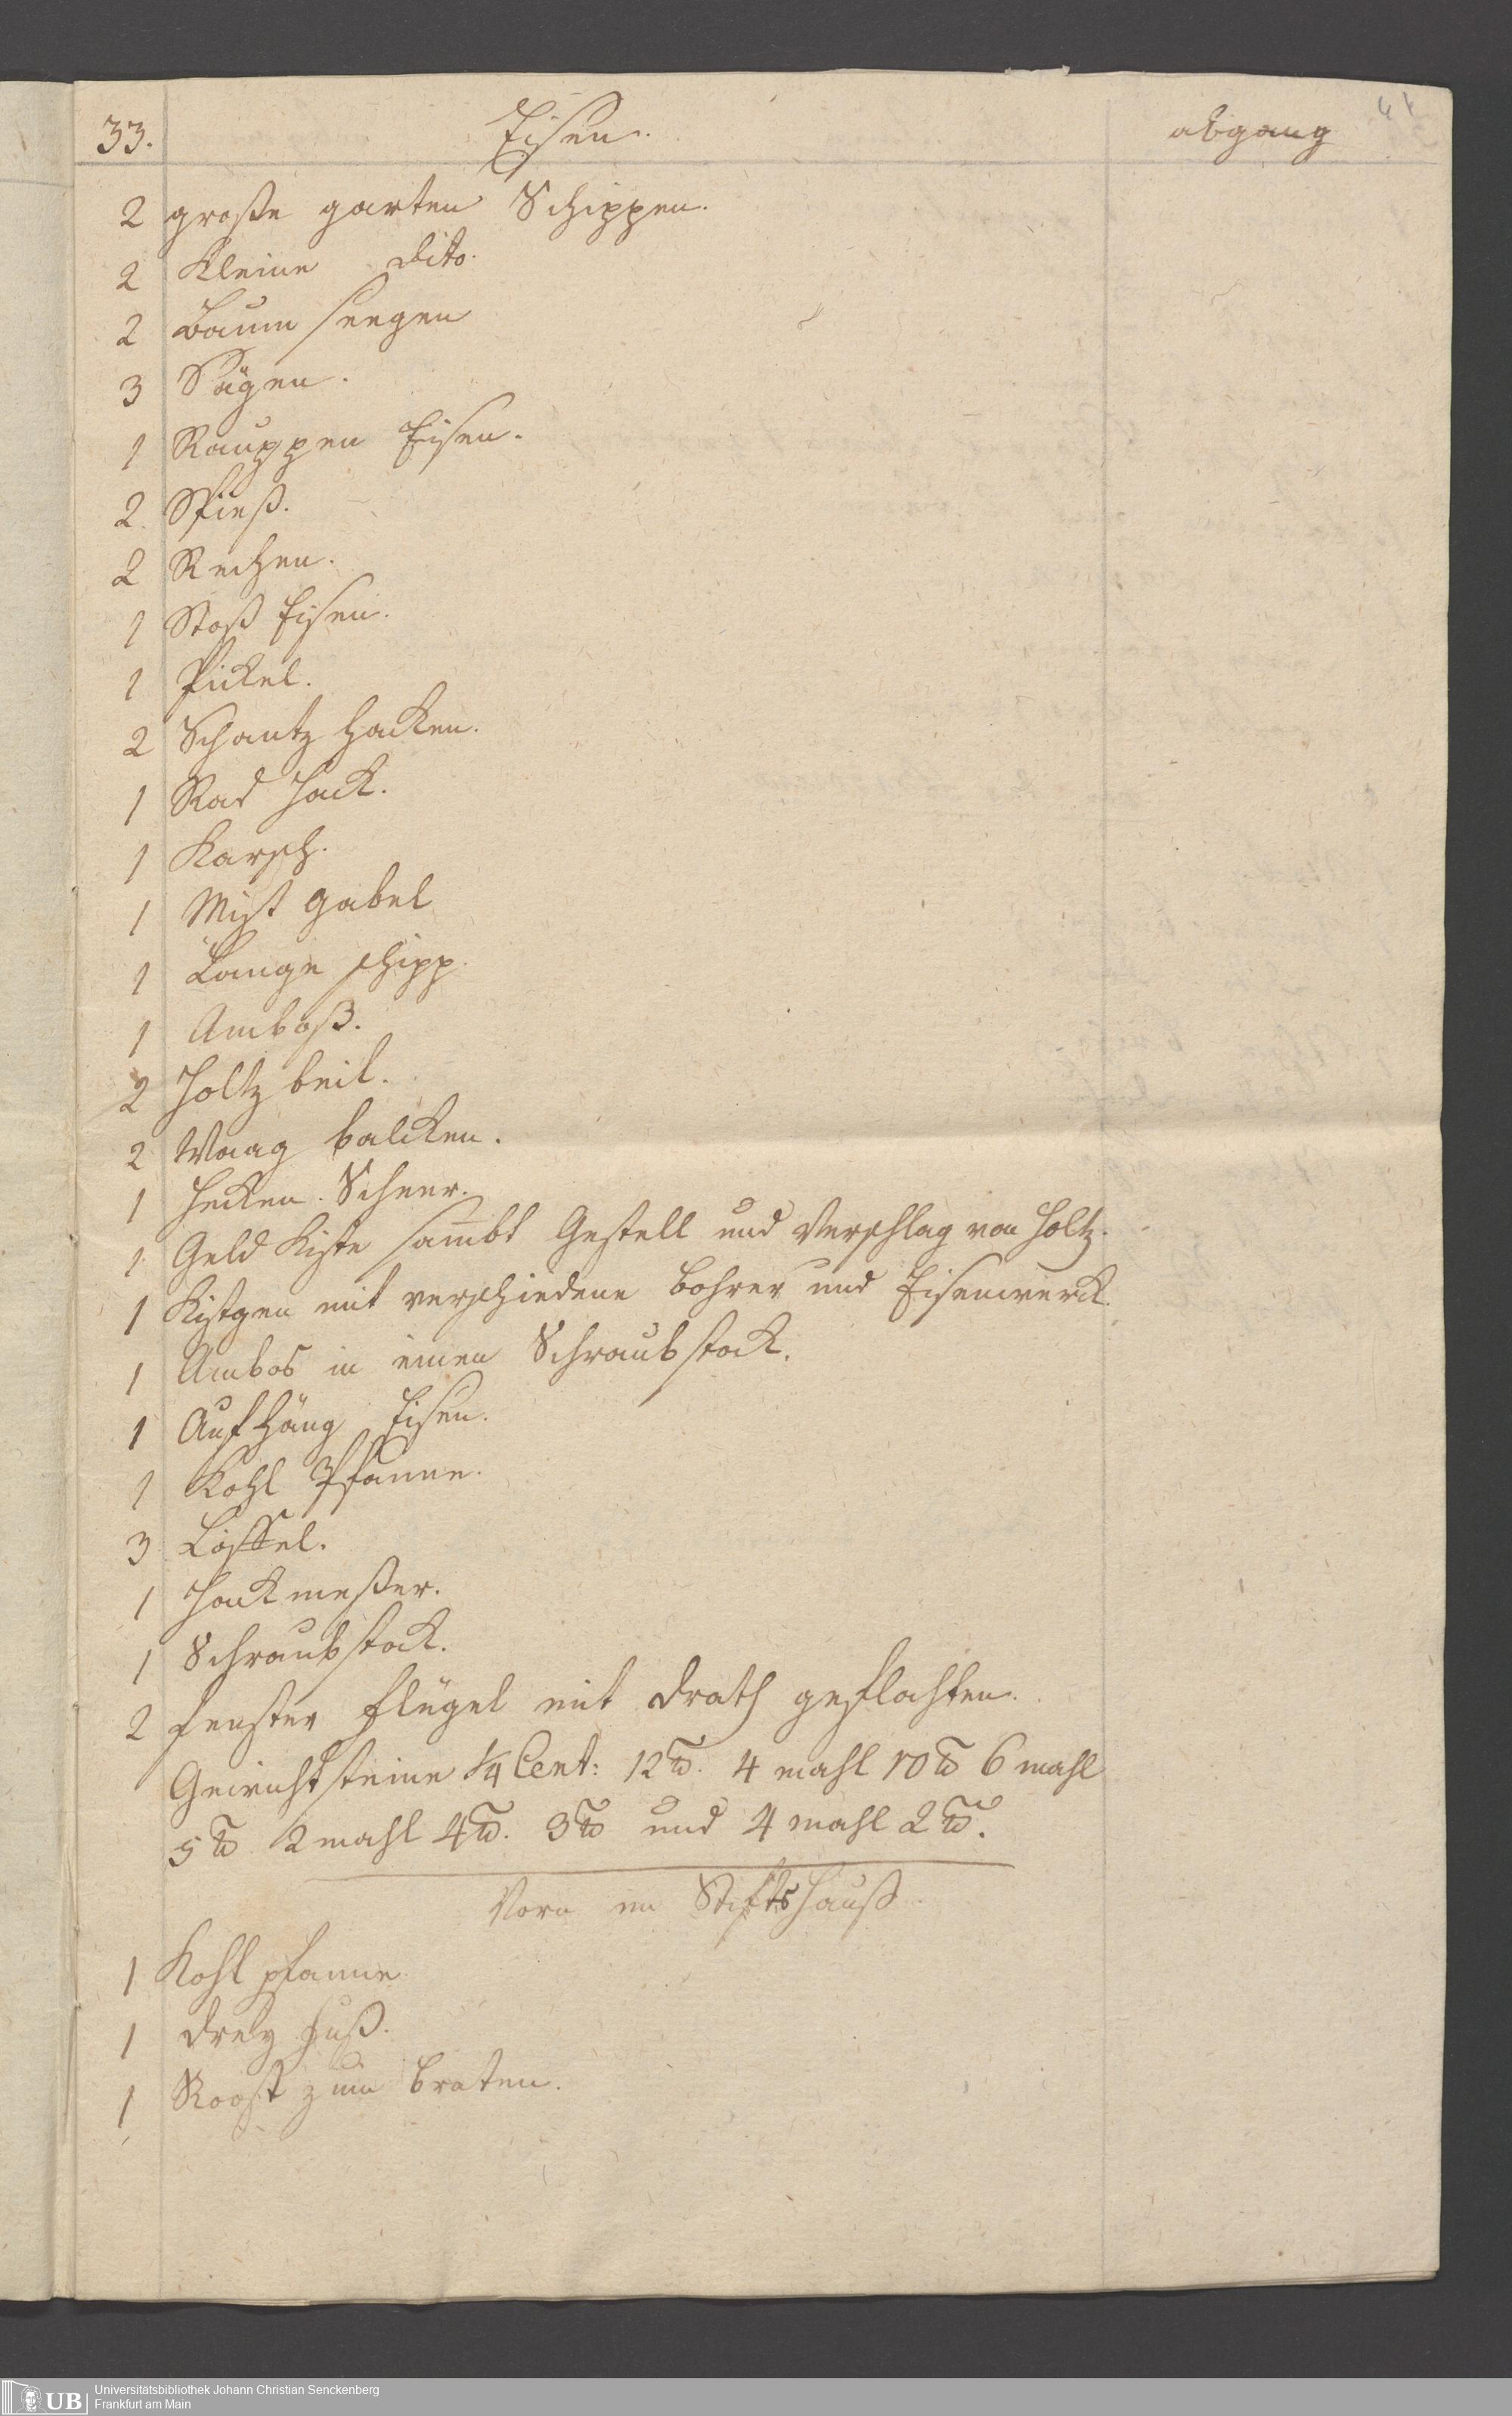 33. Eisen. abgang
2 große garten Schippen.
2 Kleine dito.
2 Baum seegen
3 Sägen.
1 Rauppen Eisen.
2 Spieß.
2 Rechen.
1 Stoß Eisen.
1 Pickel.
2 Schantz hacken.
1 Rad Hack.
1 Karsch.
1 Mist gabel
1 Lange schipp.
1 Amboß.
2 Holtz beil.
2 Waag balcken.
1 Hecken Scheer.
1 Geld Kiste sambt Gestell und Verschlag von Holtz.
1 Kistgen mit verschiedene bohrer und Eisenwerck.
1 Ambos in einen Schraubstock.
1 Aufhäng Eisen.
1 Kohl Pfanne.
3 Löffel.
1 Hackmeßer.
1 Schraubstock.
2 fenster flügel mit drath geflochten.
Gewichtsteine ¼ Cent: 12 ℔. 4 mahl 10 ℔ 6 mahl
5 ℔ 2 mahl 4 ℔. 3 ℔ und 4 mahl 2 ℔.
Vorn im Stiftshauß
1 Kohl pfanne
1 drey fuß.
1 Roost zum braten.
UB Universitätsbibliothek Johann Christian Senckenberg
Frankfurt am Main